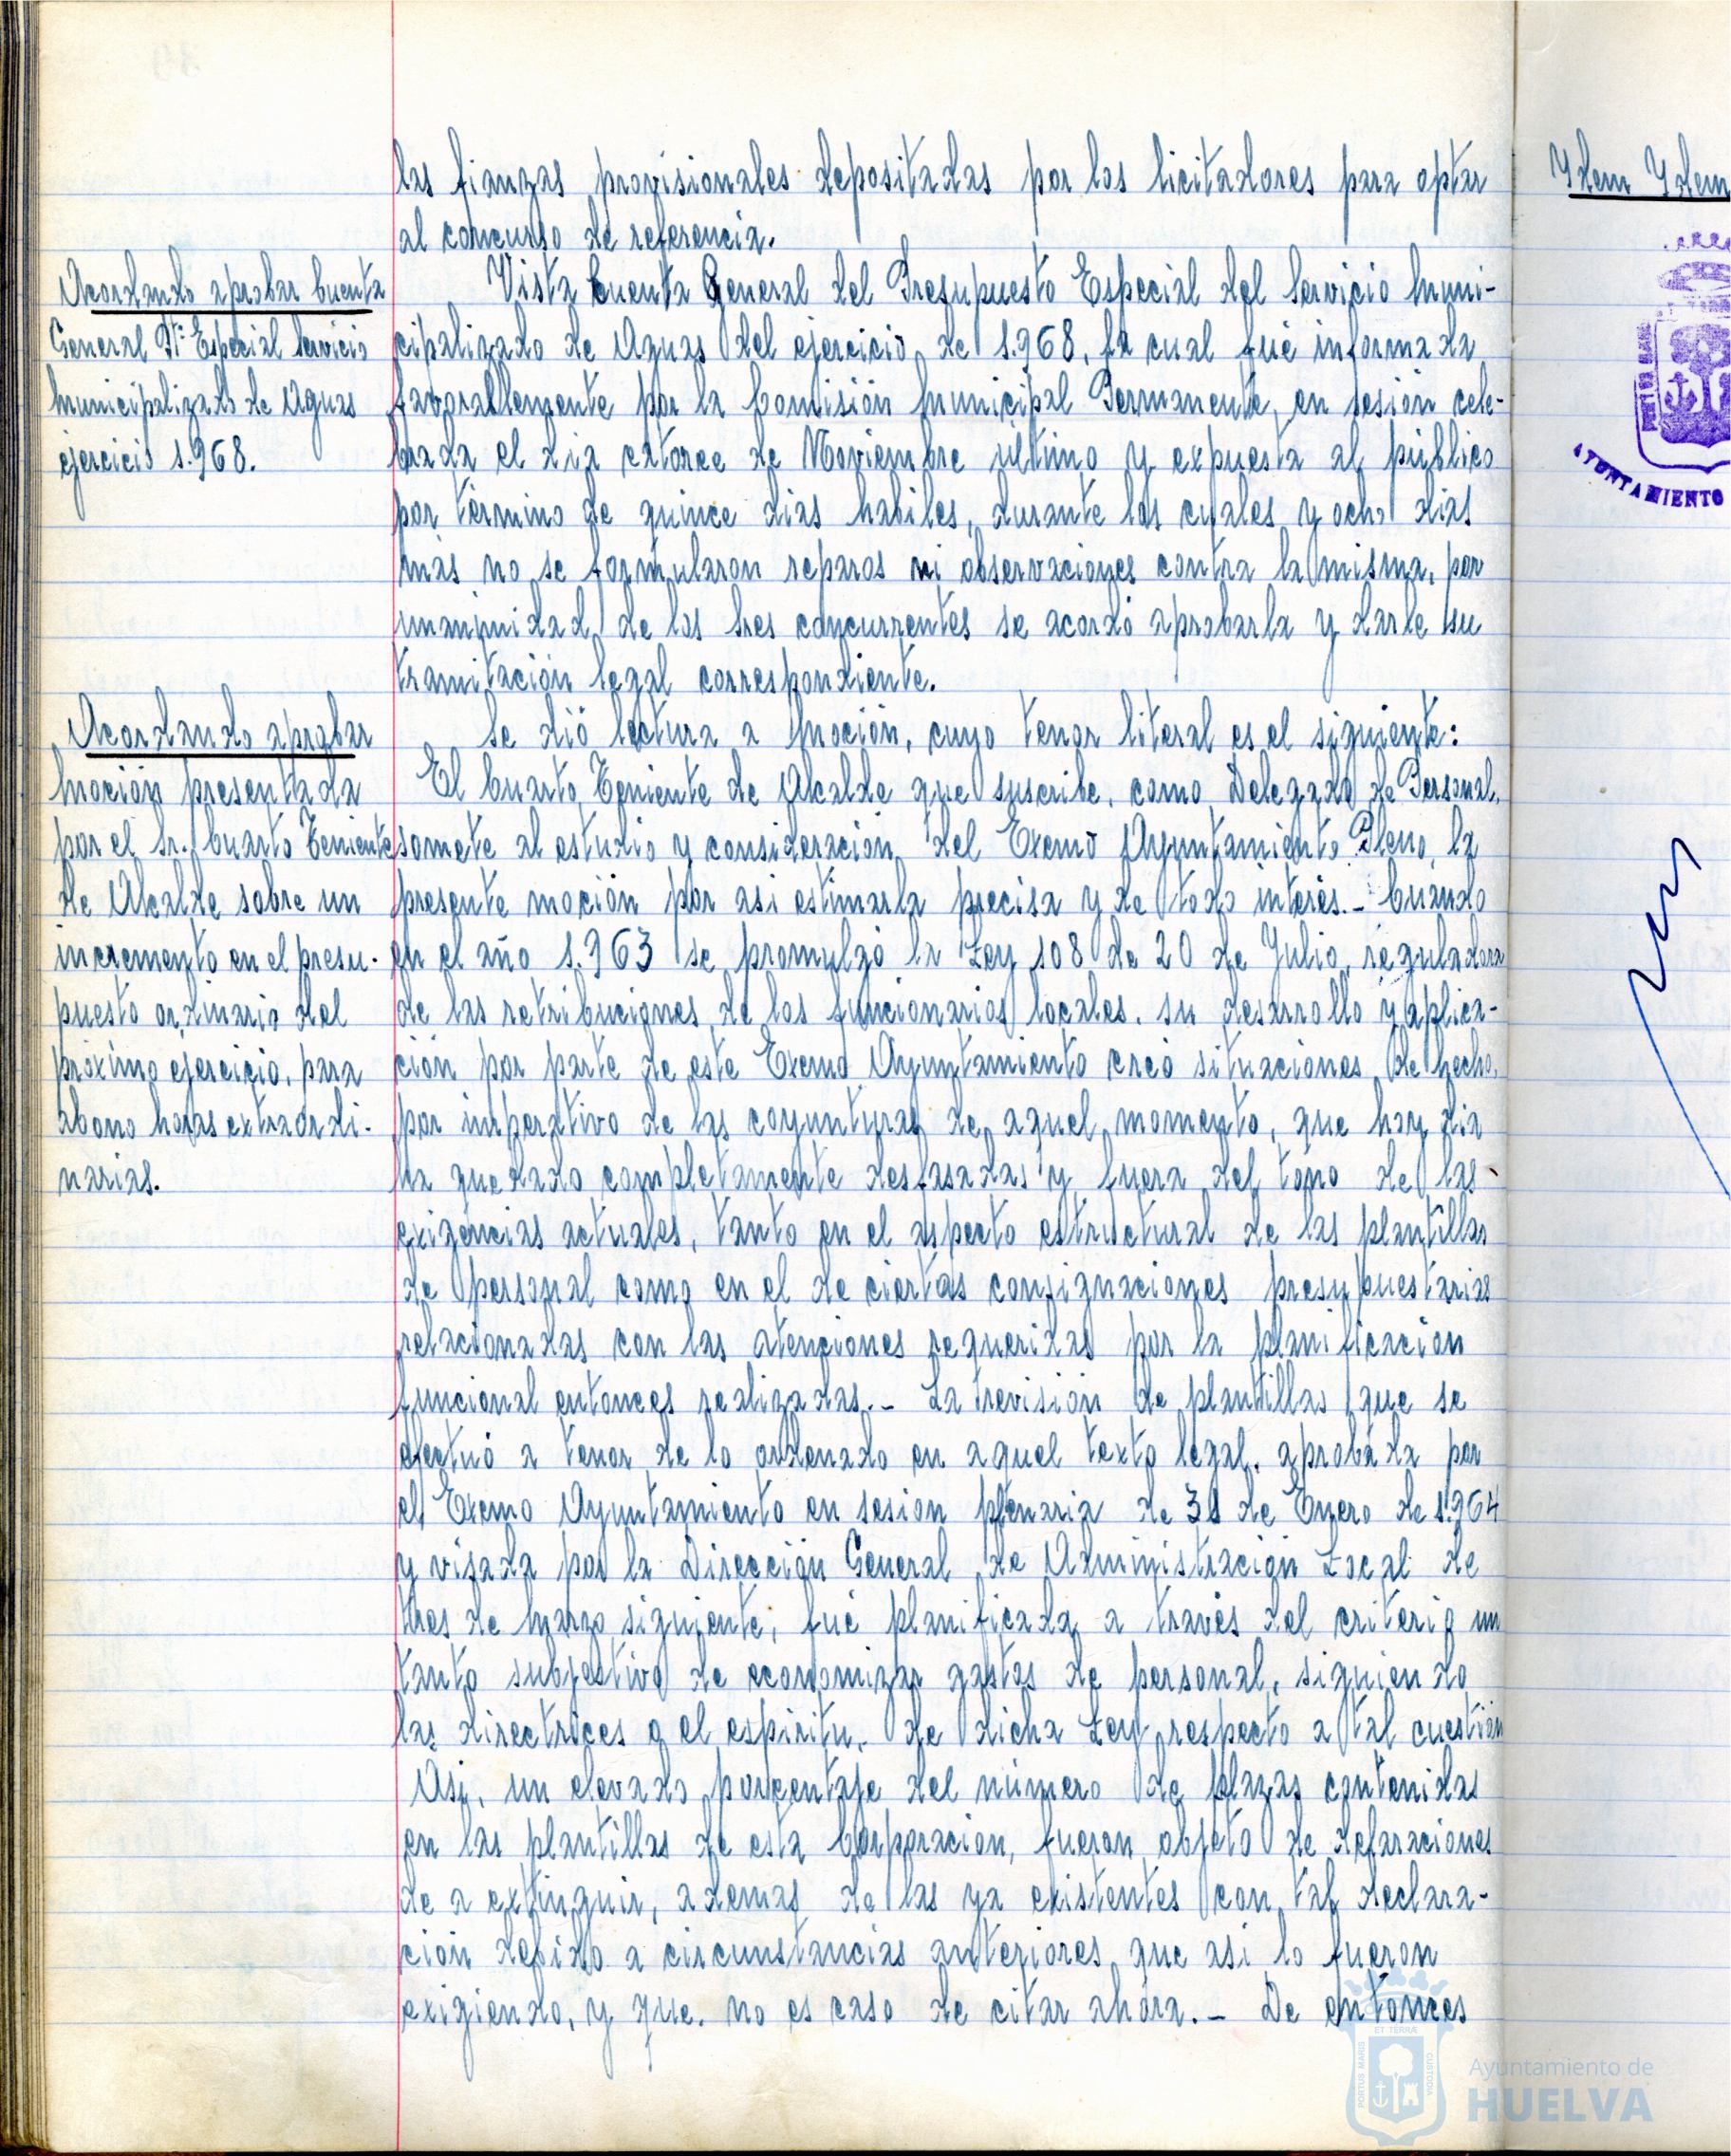 las fianzas provisionales depositadas por los licitadores para optar
al concurso de referencia.
Acordando aprobar Cuenta
General Pto Especial Servicio
Municipalizado de Aguas
ejercicio 1.968.
Vista Cuenta General del Presupuesto Especial del Servicio Muni-
cipalizado de Aguas del ejercicio de 1.968, la cual fué informada
favorablemente por la Comisión Municipal Permanente, en sesión cele-
brada el dia catorce de Noviembre último y expuesta al público
por término de quince dias habiles, durante los cuales y ocho dias
más no se formularon reparos ni observaciones contra la misma, por
unanimidad de los Sres concurrentes se acordó aprobarla y darle su
tramitación legal correspondiente.
Acordando aprobar
Moción presentada
por el Sr. Cuarto Teniente
de Alcalde sobre un
incremento en el presu-
puesto ordinario del
próximo ejercicio, para
abono horas extraordi-
narias.
Se dió lectura a Moción, cuyo tenor literal es el siguiente:
El Cuarto Teniente de Alcalde que suscribe, como Delegado de Personal,
somete al estudio y consideración del Excmo Ayuntamiento Pleno, la
presente moción por asi estimarla precisa y de todo interés.- Cuándo
en el año 1.963 se promulgó la Ley 108 de 20 de Julio, reguladora
de las retribuciones de los funcionarios locales, su desarrollo y aplica-
ción por parte de este Excmo Ayuntamiento creó situaciones de hecho,
por imperativo de las coyunturas de aquel momento, que hoy dia
ha quedado completamente desfasadas y fuera del tono de las
exigencias actuales, tanto en el aspecto estructural de las plantillas
de personal como en el de ciertas consignaciones presupuestarias
relacionadas con las atenciones requeridas por la planificación
funcional entonces realizadas.- La revisión de plantillas que se
efectuó a tenor de lo ordenado en aquel texto legal, aprobada por
el Excmo Ayuntamiento en sesion plenaria de 31 de Enero de 1.964
y visada por la Dirección General de Administración Local de
tres de Marzo siguiente, fué planificada a través del criterio un
tanto subjestivo de economizar gastos de personal, siguiendo
las directrices o el espiritu, de dicha Ley respecto a tal cuestión
Asi, un elevado porcentaje del número de plazas contenidas
en las plantillas de esta Corporación, fueron objeto de delaraciones
de a extinguir, ademas de las ya existentes con tal declara-
ción debido a circunstancias anteriores que asi lo fueron
exigiendo, y que, no es caso de citar ahora.- De entonces
Ydem Ydem
AYUNTAMIENTO
PORTUS MARIS
ET TERRÆ
CUSTODIA
Ayuntamiento de
HUELVA